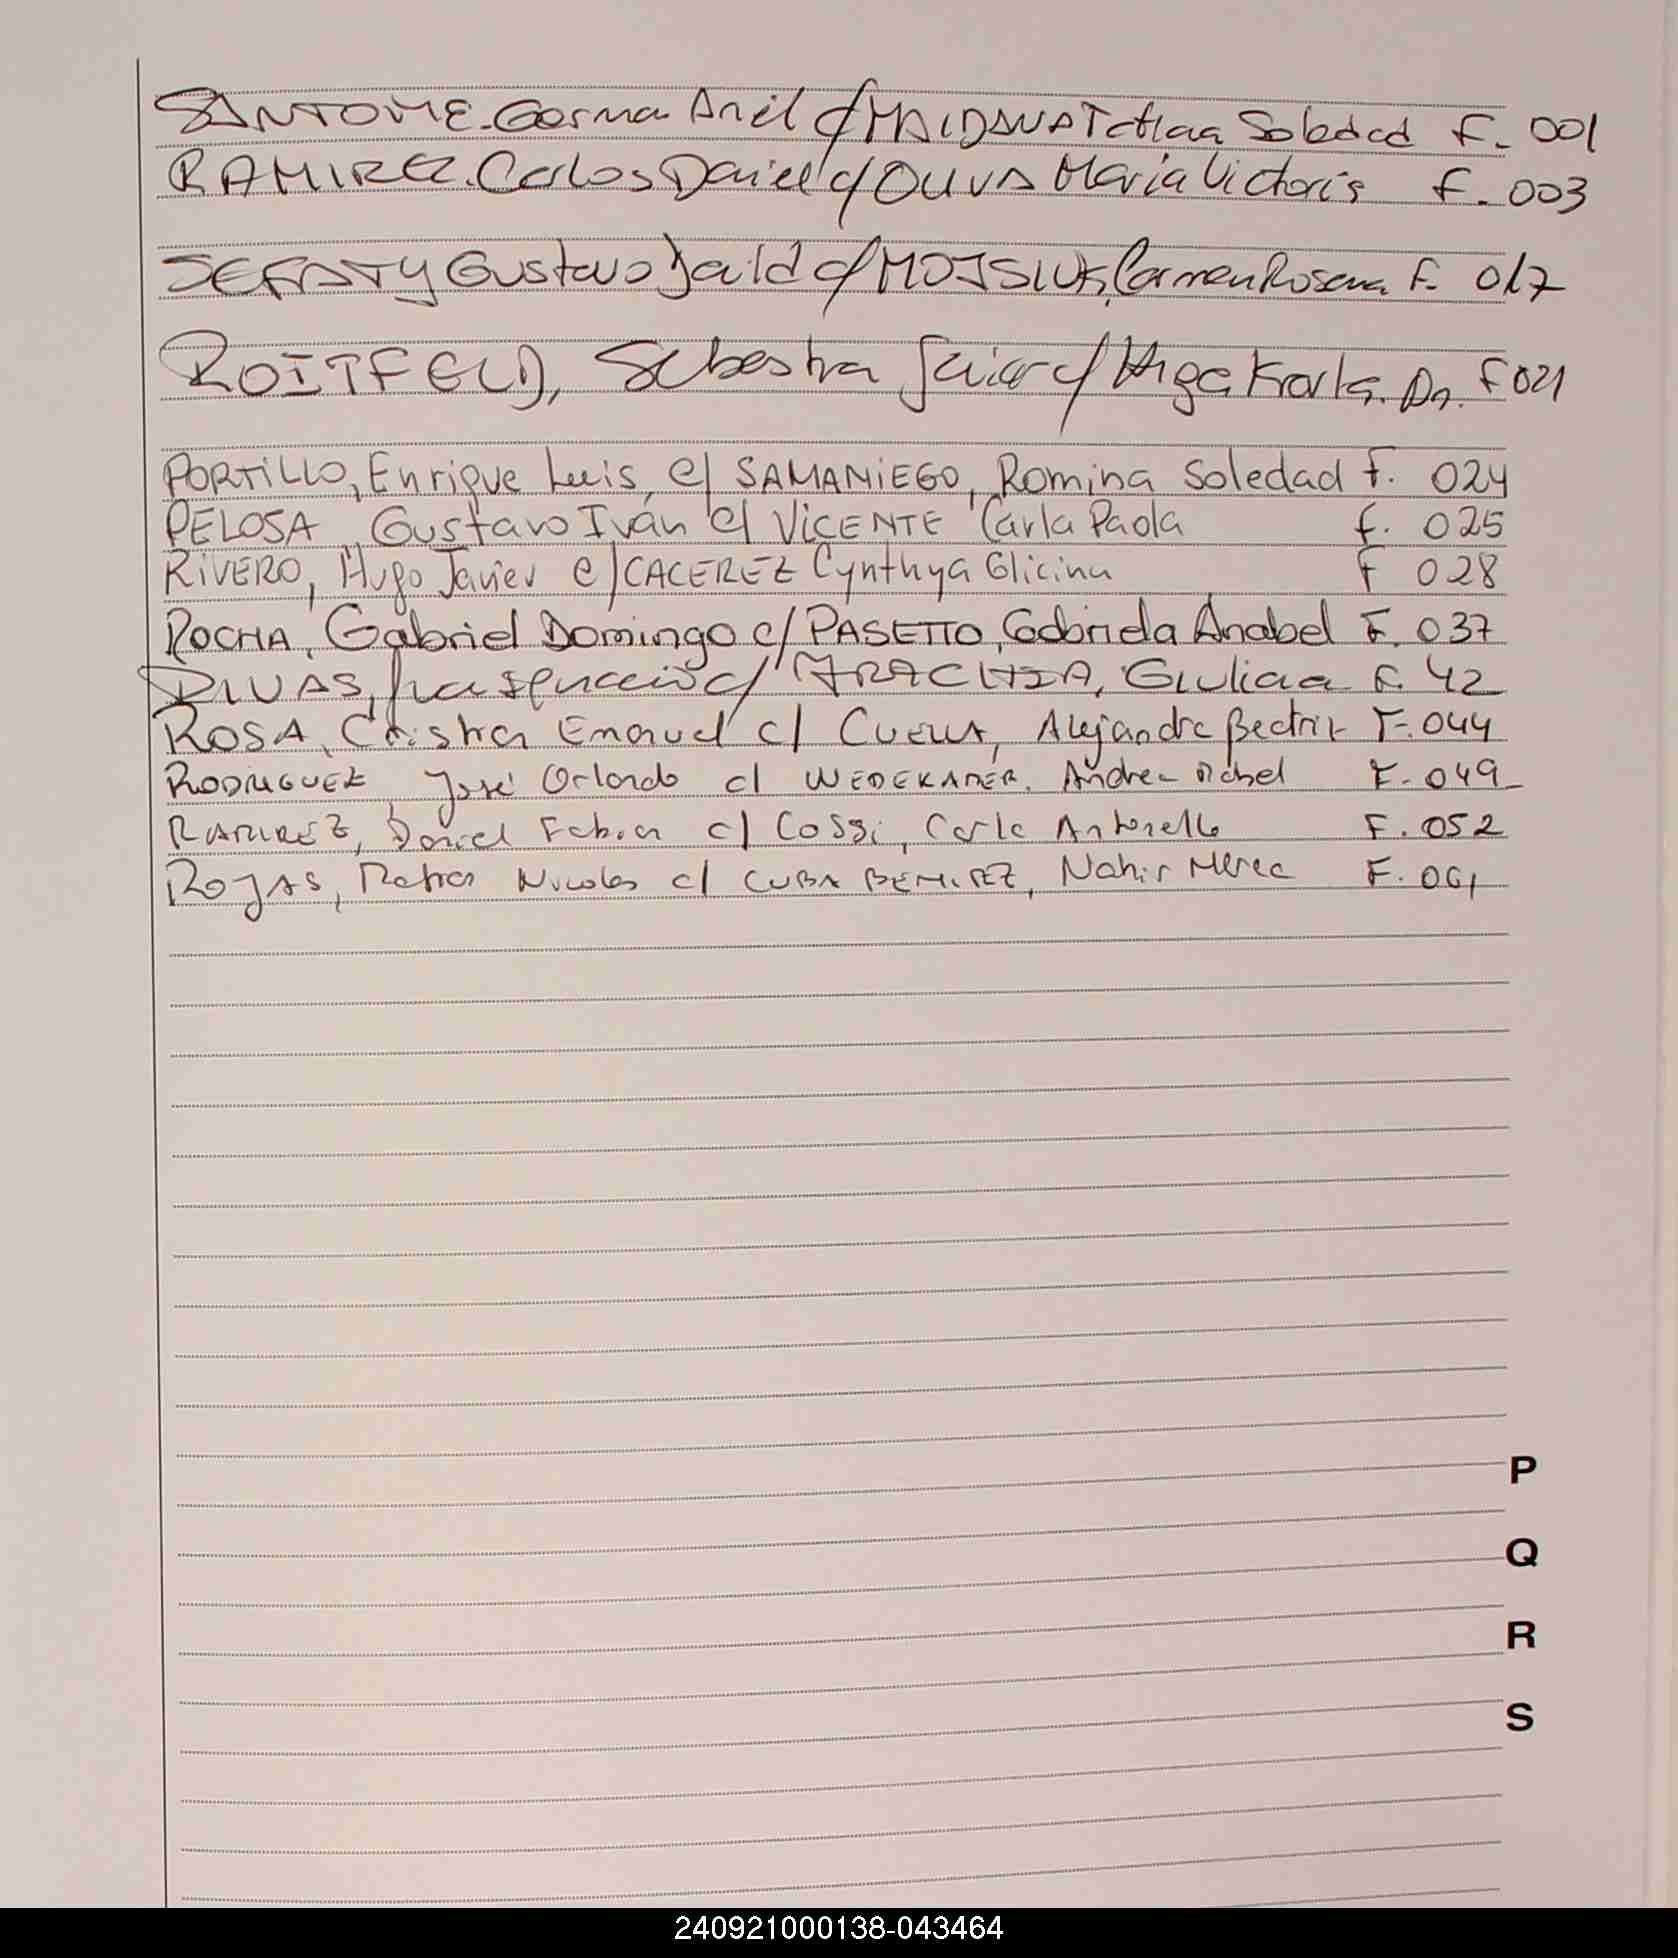 SANTOME. German Ariel c/ MAIDANA Tatiana Soledad F. 001
RAMIREZ. Carlos Daniel c/ OLIVA Maria Victoria F. 003
SEFATY Gustavo c/ Carmen Rosana F. 017
ROITFELD, Sebastian Javier c/ Karla. F 021
PORTILLO, Enrique Luis, c/ SAMANIEGO, Romina Soledad f. 024
PELOSA, Gustavo Iván c/ VICENTE Carla Paola f. 025
RIVERO, Hugo Javier c/ CACEREZ Cynthya Glicina F 028
ROCHA, Gabriel Domingo c/ PASETTO, Gabriela Anabel F. 037
RIVAS, c/ Giuliana F. 42
ROSA, Cristian Emanuel c/ Alejandra Beatriz F. 044
RODRIGUEZ, José Orlando c/ Andrea Mabel F. 049
RAMIREZ, Daniel Fabian c/ COSSI, Carla Antonella F. 052
ROJAS, Matias Nicolas c/ CUBA Nahir F. 061
P
Q
R
S
240921000138-043464